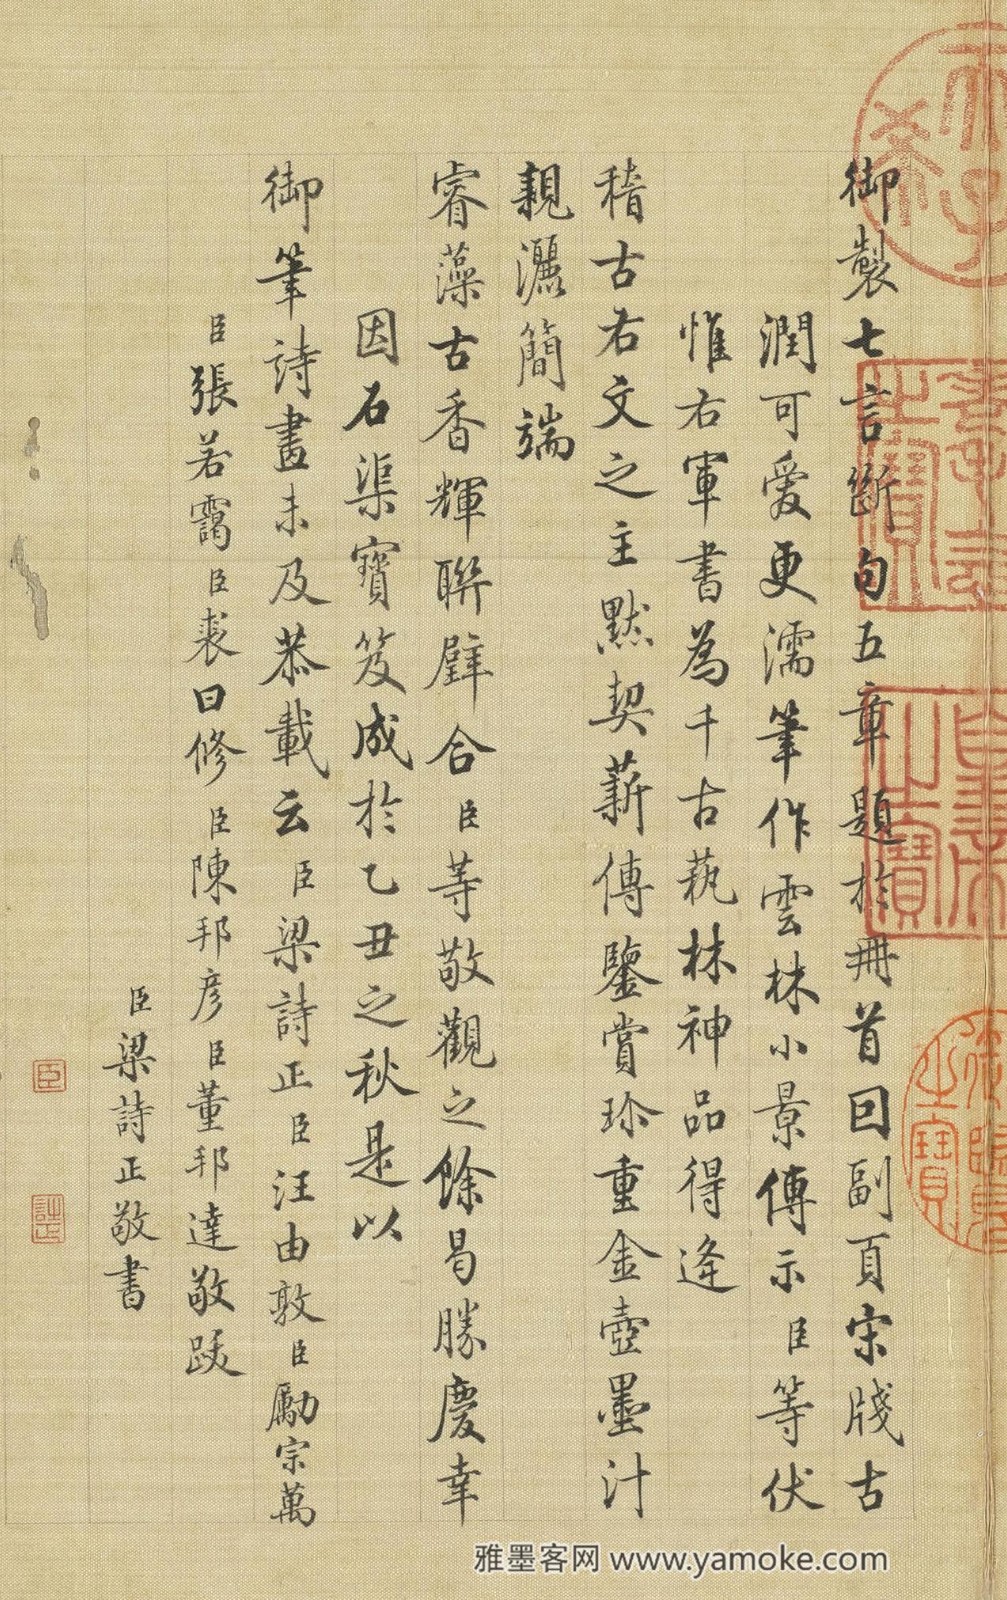 御製七言斷句五章題於冊首回副頁宋牋古
潤可愛更濡筆作雲林小景傳示臣等伏
惟右軍書為千古蓺林神品得逢
稽古右文之主默契薪傳鑒賞珍重金壺墨汁
親灑簡端
睿藻古香輝聯璧合臣等敬觀之餘曷勝慶幸
因石渠寶笈成於乙丑之秋是以
御筆詩畫未及恭載云臣梁詩正臣汪由敦臣勵宗萬
臣張若靄臣裘曰修臣陳邦彥臣董邦達敬跋
臣梁詩正敬書
臣
詩正
雅墨客网 www.yamoke.com